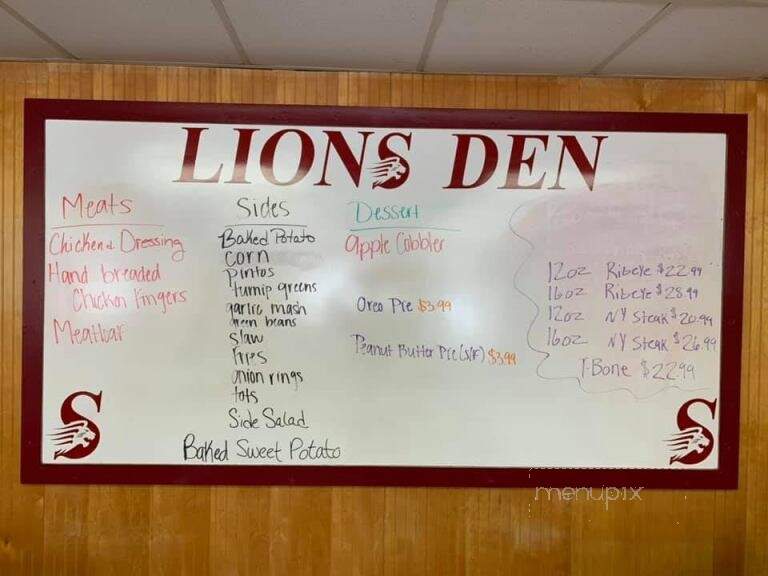 LIONS DEN
Meats
Chicken & Dressing
Hand breaded
Chicken Fingers
Meatloaf
Sides
Baked Potato
corn
pintos
turnip greens
garlic mash
green beans
slaw
fries
onion rings
tots
Side Salad
Baked Sweet Potato
Dessert
Apple Cobbler
Oreo Pie $3.99
Peanut Butter Pie (S/F) $3.99
12oz Ribeye $22.99
16oz Ribeye $28.99
12oz NY Steak $20.99
16oz NY Steak $26.99
T-Bone $22.99
S
S
menupix